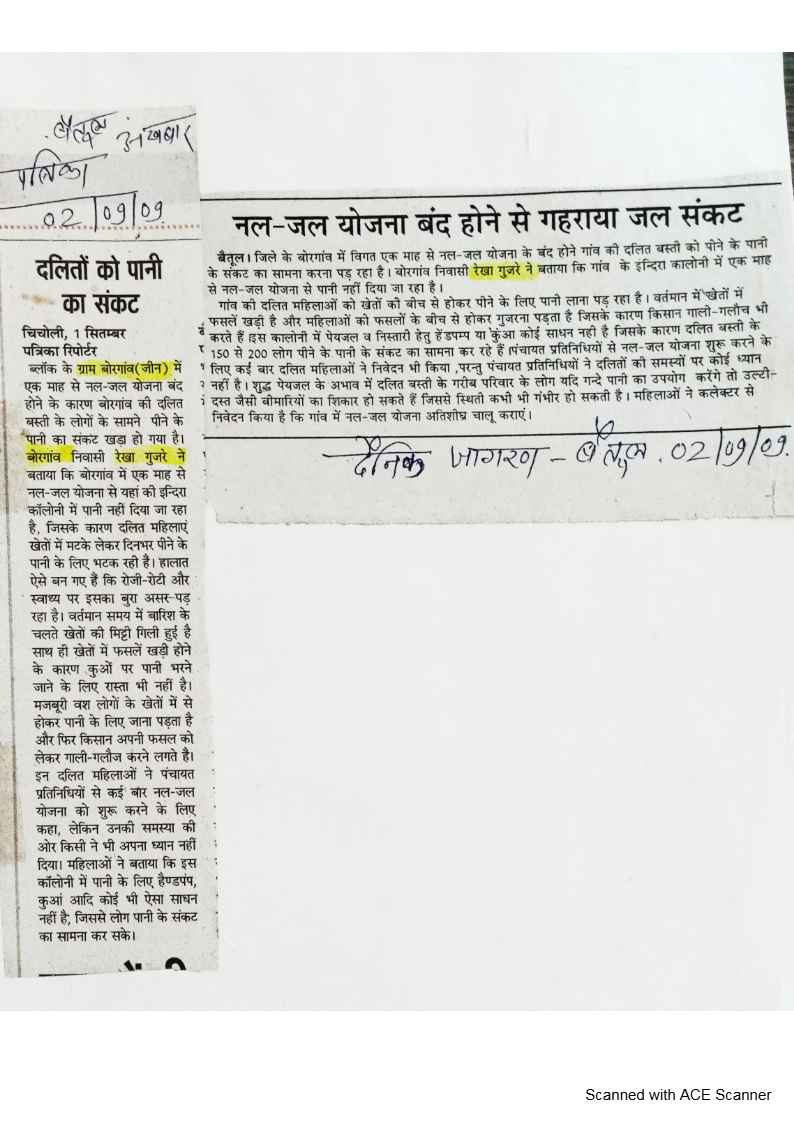 बैतूल अखबार
पत्रिका
02/09/09
दलितों को पानी
का संकट
चिचोली, 1 सितम्बर
पत्रिका रिपोर्टर
ब्लॉक के ग्राम बोरगांव(जीन) में
एक माह से नल-जल योजना बंद
होने के कारण बोरगांव की दलित
बस्ती के लोगों के सामने पीने के
पानी का संकट खड़ा हो गया है।
बोरगांव निवासी रेखा गुजरे ने
बताया कि बोरगांव में एक माह से
नल-जल योजना से यहां की इन्दिरा
कॉलोनी में पानी नहीं दिया जा रहा
है, जिसके कारण दलित महिलाएं
खेतों में मटके लेकर दिनभर पीने के
पानी के लिए भटक रही है। हालात
ऐसे बन गए हैं कि रोजी-रोटी और
स्वाथ्य पर इसका बुरा असर पड़
रहा है। वर्तमान समय में बारिश के
चलते खेतों की मिट्टी गिली हुई है
साथ ही खेतों में फसलें खड़ी होने
के कारण कुओं पर पानी भरने
जाने के लिए रास्ता भी नहीं है।
मजबूरी वश लोगों के खेतों में से
होकर पानी के लिए जाना पड़ता है
और फिर किसान अपनी फसल को
लेकर गाली-गलौज करने लगते है।
इन दलित महिलाओं ने पंचायत
प्रतिनिधियों से कई बार नल-जल
योजना को शुरू करने के लिए
कहा, लेकिन उनकी समस्या की
ओर किसी ने भी अपना ध्यान नहीं
दिया। महिलाओं ने बताया कि इस
कॉलोनी में पानी के लिए हैण्डपंप,
कुआं आदि कोई भी ऐसा साधन
नहीं है, जिससे लोग पानी के संकट
का सामना कर सके।
नल-जल योजना बंद होने से गहराया जल संकट
बैतूल। जिले के बोरगांव में विगत एक माह से नल-जल योजना के बंद होने गांव की दलित बस्ती को पीने के पानी
के संकट का सामना करना पड़ रहा है। बोरगांव निवासी रेखा गुजरे ने बताया कि गांव के इन्दिरा कालोनी में एक माह
से नल-जल योजना से पानी नहीं दिया जा रहा है।
गांव की दलित महिलाओं को खेतों की बीच से होकर पीने के लिए पानी लाना पड़ रहा है। वर्तमान में खेतों में
फसलें खड़ी है और महिलाओं को फसलों के बीच से होकर गुजरना पड़ता है जिसके कारण किसान गाली-गलौच भी
करते हैं।इस कालोनी में पेयजल व निस्तारी हेतु हेंडपम्प या कुंआ कोई साधन नही है जिसके कारण दलित बस्ती के
150 से 200 लोग पीने के पानी के संकट का सामना कर रहे हैं।पंचायत प्रतिनिधियों से नल-जल योजना शुरू करने के
लिए कई बार दलित महिलाओं ने निवेदन भी किया ,परन्तु पंचायत प्रतिनिधियों ने दलितों की समस्यों पर कोई ध्यान
नहीं है। शुद्ध पेयजल के अभाव में दलित बस्ती के गरीब परिवार के लोग यदि गन्दे पानी का उपयोग करेंगे तो उल्टी-
दस्त जैसी बीमारियों का शिकार हो सकते हैं जिससे स्थिती कभी भी गंभीर हो सकती है। महिलाओं ने कलेक्टर से
निवेदन किया है कि गांव में नल-जल योजना अतिशीघ्र चालू कराएं।
दैनिक जागरण - बैतूल. 02/09/09.
Scanned with ACE Scanner